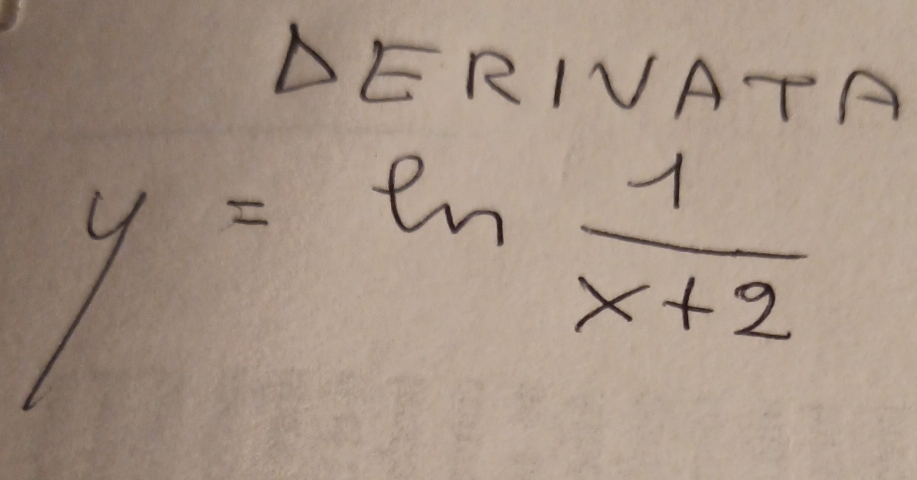 DERIVATA
y = ln 1/(x+2)